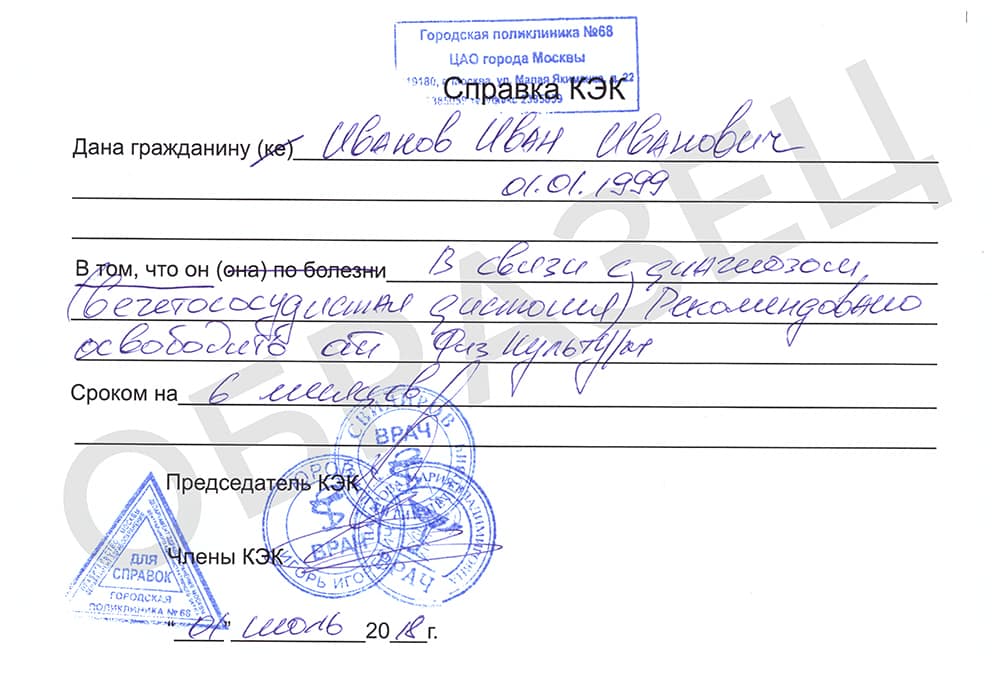 Городская поликлиника №68
ЦАО города Москвы
г. Москва, ул. Малая Якиманка, д. 22
Справка КЭК
Дана гражданину (ке) Иванов Иван Иванович
01.01.1999
В том, что он (она) по болезни В связи с диагнозом
(вегетососудистая дистония) Рекомендовано
освободить от физкультуры
Сроком на 6 месяцев
ОБРАЗЕЦ
ВРАЧ
Председатель КЭК
ВРАЧ
ИГОРЬ
ВРАЧ
Члены КЭК
ДЛЯ
СПРАВОК
ГОРОДСКАЯ
ПОЛИКЛИНИКА № 68
"01" июль 2018г.